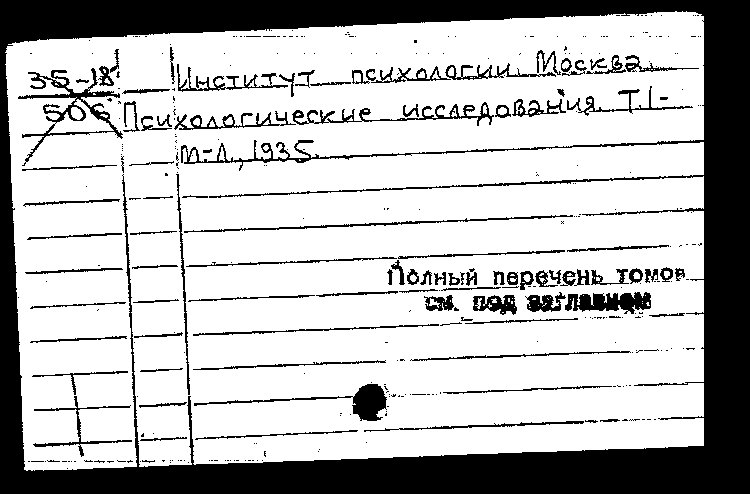 35-18
506
Институт психологии. Москва.
Психологические исследования. Т.1-
М-Л., 1935.
Полный перечень томов
см. под заглавием